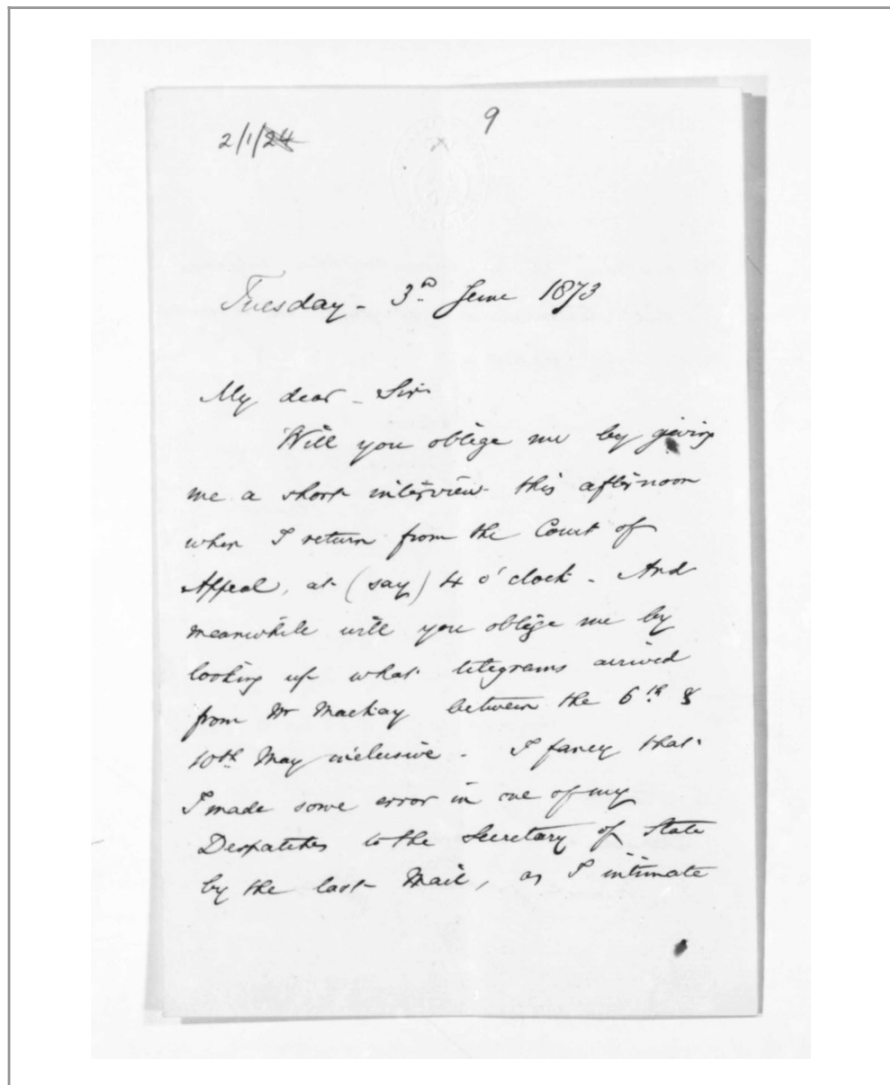 9
2/1/24
Tuesday - 3rd June 1873
My dear - Sir
Will you oblige me by giving
me a short interview this afternoon
when I return from the Court of
Appeal, at (say) 4 o'clock. And
meanwhile will you oblige me by
looking up what telegrams arrived
from Mr Mackay between the 6th &
10th May inclusive. I fancy that
I made some error in one of my
Despatches to the Secretary of State
by the last Mail, as I intimate